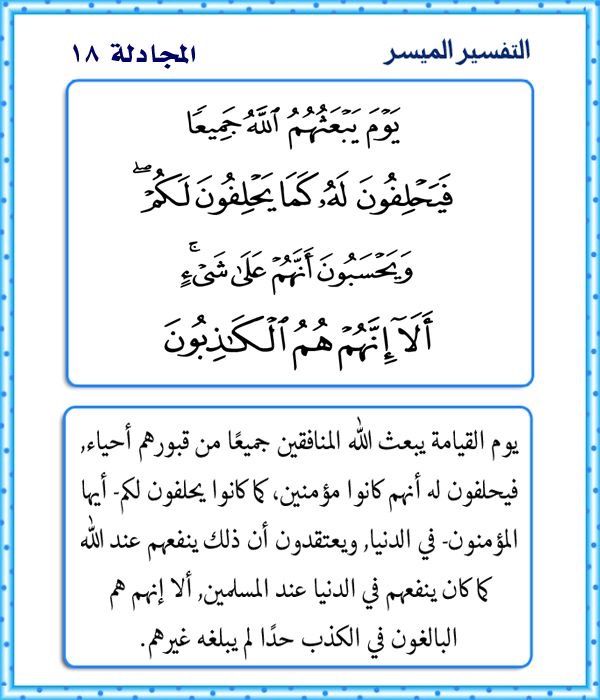 التفسير الميسر
المجادلة ١٨
يَوْمَ يَبْعَثُهُمُ ٱللَّهُ جَمِيعًا
فَيَحْلِفُونَ لَهُۥ كَمَا يَحْلِفُونَ لَكُمْ ۖ
وَيَحْسَبُونَ أَنَّهُمْ عَلَىٰ شَىْءٍ ۚ
أَلَآ إِنَّهُمْ هُمُ ٱلْكَـٰذِبُونَ
يوم القيامة يبعث الله المنافقين جميعًا من قبورهم أحياء,
فيحلفون له أنهم كانوا مؤمنين، كما كانوا يحلفون لكم- أيها
المؤمنون- في الدنيا, ويعتقدون أن ذلك ينفعهم عند الله
كما كان ينفعهم في الدنيا عند المسلمين, ألا إنهم هم
البالغون في الكذب حدًا لم يبلغه غيرهم.